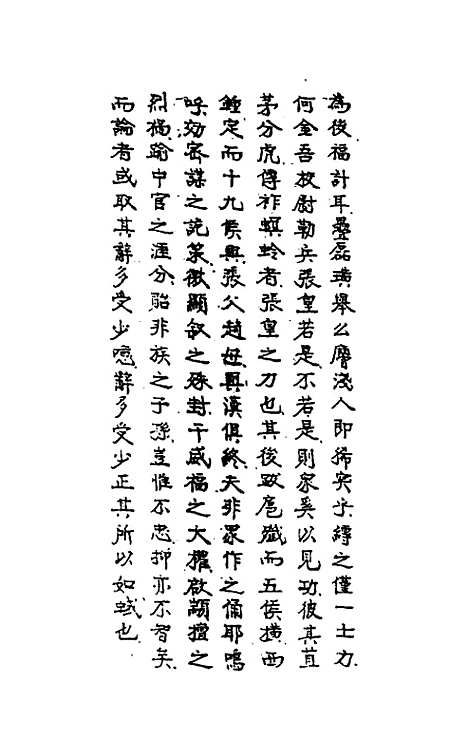 為後福計耳疊磊璜舉么麿淺人即稀突乎縛之僅一士力
何金吾校尉勒兵張皇若是不若是則衆奚以見功彼其苴
茅分虎傳祚螟蛉者張皇之力也其後跋扈殲而五侯擅西
鐘定而十九侯興張父趙母與漢俱終夫非衆作之俑耶嗚
呼効密謀之託策微顯叙之殊封干威福之大權啟顓擅之
烈禍踰中官之涯分貽非族之子孫豈惟不忠抑亦不智矣
而論者或取其辭多受少噫辭多受少正其所以如蜮也